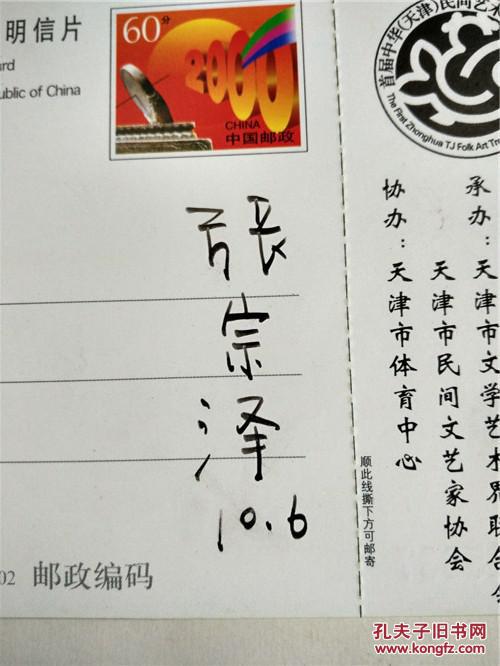 明信片
60分
2000
CHINA
中国邮政
ard
ublic of China
張
宗
泽
10.6
02 邮政编码
顺此线撕下方可邮寄
首届中华(天津)民间艺
The First Zhonghua TJ Folk Art Tre
承办：天津市文学艺术界联合会
天津市民间文艺家协会
协办：天津市体育中心
孔夫子旧书网
www.kongfz.com